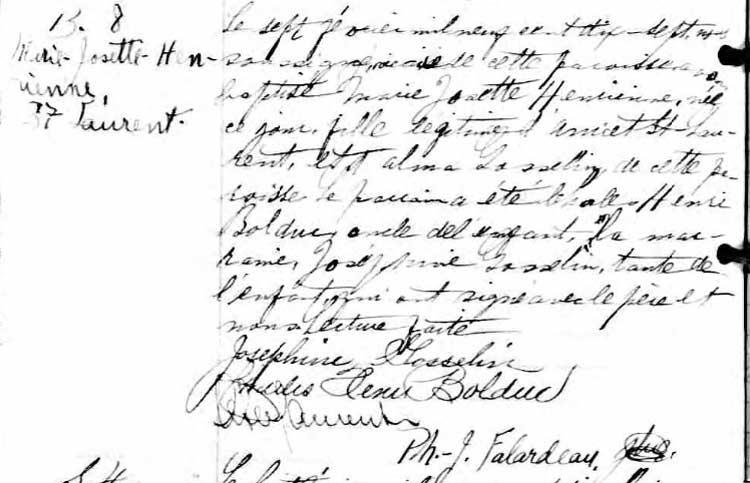 B. 8
Marie-Josette-Hen-
rienne,
St Laurent.
Le sept février mil neuf cent dix-sept, nous
soussigné, vicaire de cette paroisse avons
baptisé Marie Josette Henrienne, née
ce jour, fille légitime d'Anicet St-Lau-
rent, et d'Alma Gosselin, de cette pa-
roisse. Le parrain a été Charles Henri
Bolduc, oncle de l'enfant, la mar-
raine, Joséphine Gosselin, tante de
l'enfant, qui ont signé avec le père et
nous. Lecture faite
Joséphine Gosselin
Charles Henri Bolduc
Laurent
Ph.-J. Falardeau,